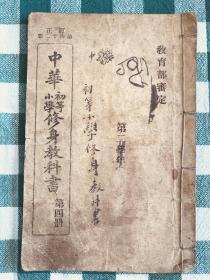 教育部審定
初等小學修身教科書
訂正
中華初等小學修身教科書 第四册